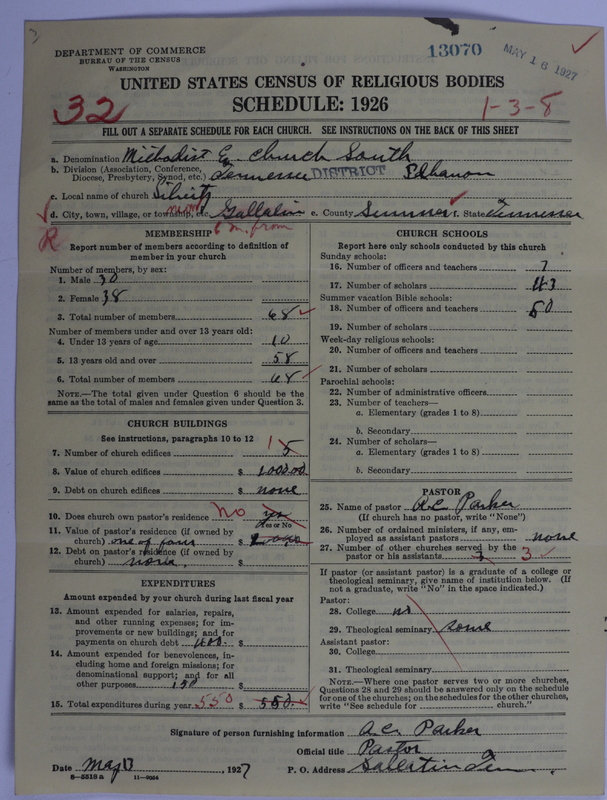 13070
MAY 16 1927
DEPARTMENT OF COMMERCE
BUREAU OF THE CENSUS
WASHINGTON
UNITED STATES CENSUS OF RELIGIOUS BODIES
SCHEDULE: 1926
32
1-3-8
FILL OUT A SEPARATE SCHEDULE FOR EACH CHURCH. SEE INSTRUCTIONS ON THE BACK OF THIS SHEET
a. Denomination Methodist E. Church South
b. Division (Association, Conference, Diocese, Presbytery, Synod, etc.) Tennessee DISTRICT
c. Local name of church
d. City, town, village, or township, etc. Gallatin e. County Sumner f. State Tennessee
R
6 m. from
MEMBERSHIP
Report number of members according to definition of
member in your church
Number of members, by sex:
1. Male 30
2. Female 38
3. Total number of members 68
Number of members under and over 13 years old:
4. Under 13 years of age 10
5. 13 years old and over 58
6. Total number of members 68
NOTE.—The total given under Question 6 should be
same as the total of males and females given under Question 3.
CHURCH BUILDINGS
See instructions, paragraphs 10 to 12
7. Number of church edifices 1
8. Value of church edifices $ 1000.00
9. Debt on church edifices $ none
10. Does church own pastor's residence No yes
Yes or No
11. Value of pastor's residence (if owned by
church) one of four $
12. Debt on pastor's residence (if owned by
church) none $
EXPENDITURES
Amount expended by your church during last fiscal year
13. Amount expended for salaries, repairs,
and other running expenses; for im-
provements or new buildings; and for
payments on church debt 400. $
14. Amount expended for benevolences, in-
cluding home and foreign missions; for
denominational support; and for all
other purposes 150 $
15. Total expenditures during year 550 $ 550.
CHURCH SCHOOLS
Report here only schools conducted by this church
Sunday schools:
16. Number of officers and teachers 7
17. Number of scholars 43
Summer vacation Bible schools:
18. Number of officers and teachers 50
19. Number of scholars
Week-day religious schools:
20. Number of officers and teachers
21. Number of scholars
Parochial schools:
22. Number of administrative officers
23. Number of teachers—
a. Elementary (grades 1 to 8)
b. Secondary
24. Number of scholars—
a. Elementary (grades 1 to 8)
b. Secondary
PASTOR
25. Name of pastor A.C. Parker
(If church has no pastor, write "None")
26. Number of ordained ministers, if any, em-
ployed as assistant pastors none
27. Number of other churches served by the
pastor or his assistants 3 3
If pastor (or assistant pastor) is a graduate of a college or
theological seminary, give name of institution below. (If
not a graduate, write "No" in the space indicated.)
Pastor:
28. College no
29. Theological seminary some
Assistant pastor:
30. College
31. Theological seminary
NOTE.—Where one pastor serves two or more churches,
Questions 28 and 29 should be answered only on the schedule
for one of the churches; on the schedules for the other churches,
write "See schedule for church."
Signature of person furnishing information A.C. Parker
Official title Pastor
Date May 13, 1927 P. O. Address Gallatin Tenn
8—5518 a 11—9864